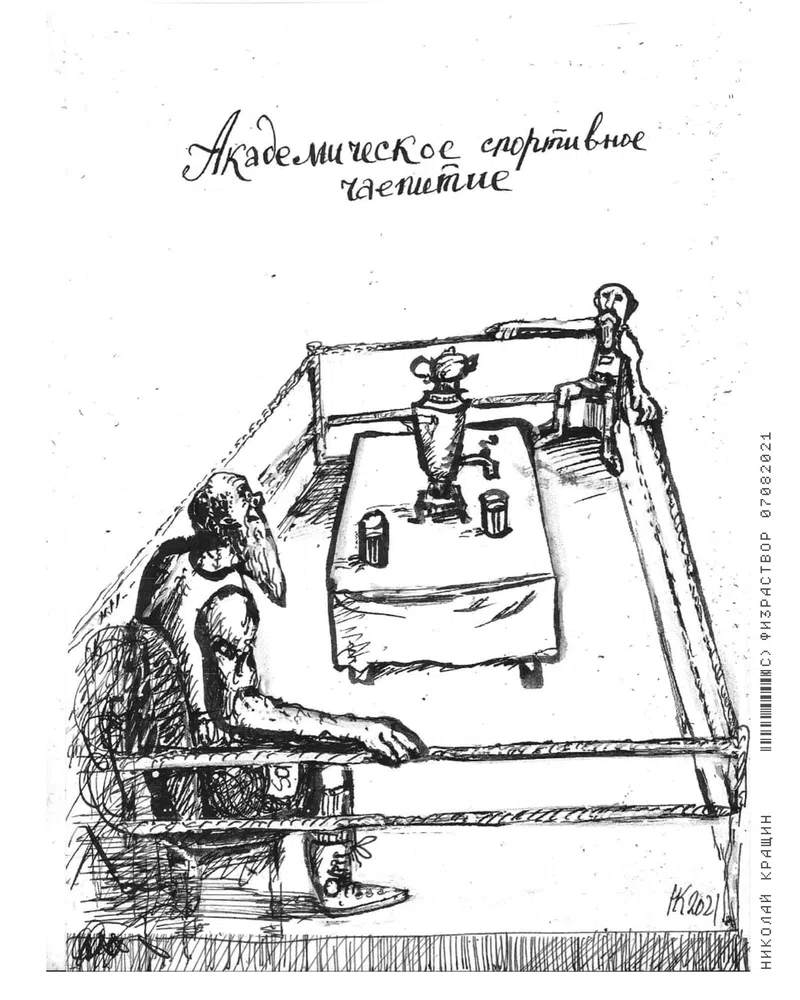 Академическое спортивное
чаепитие
НК 2021
НИКОЛАЙ КРАЩИН (C) ФИЗРАСТВОР 07082021